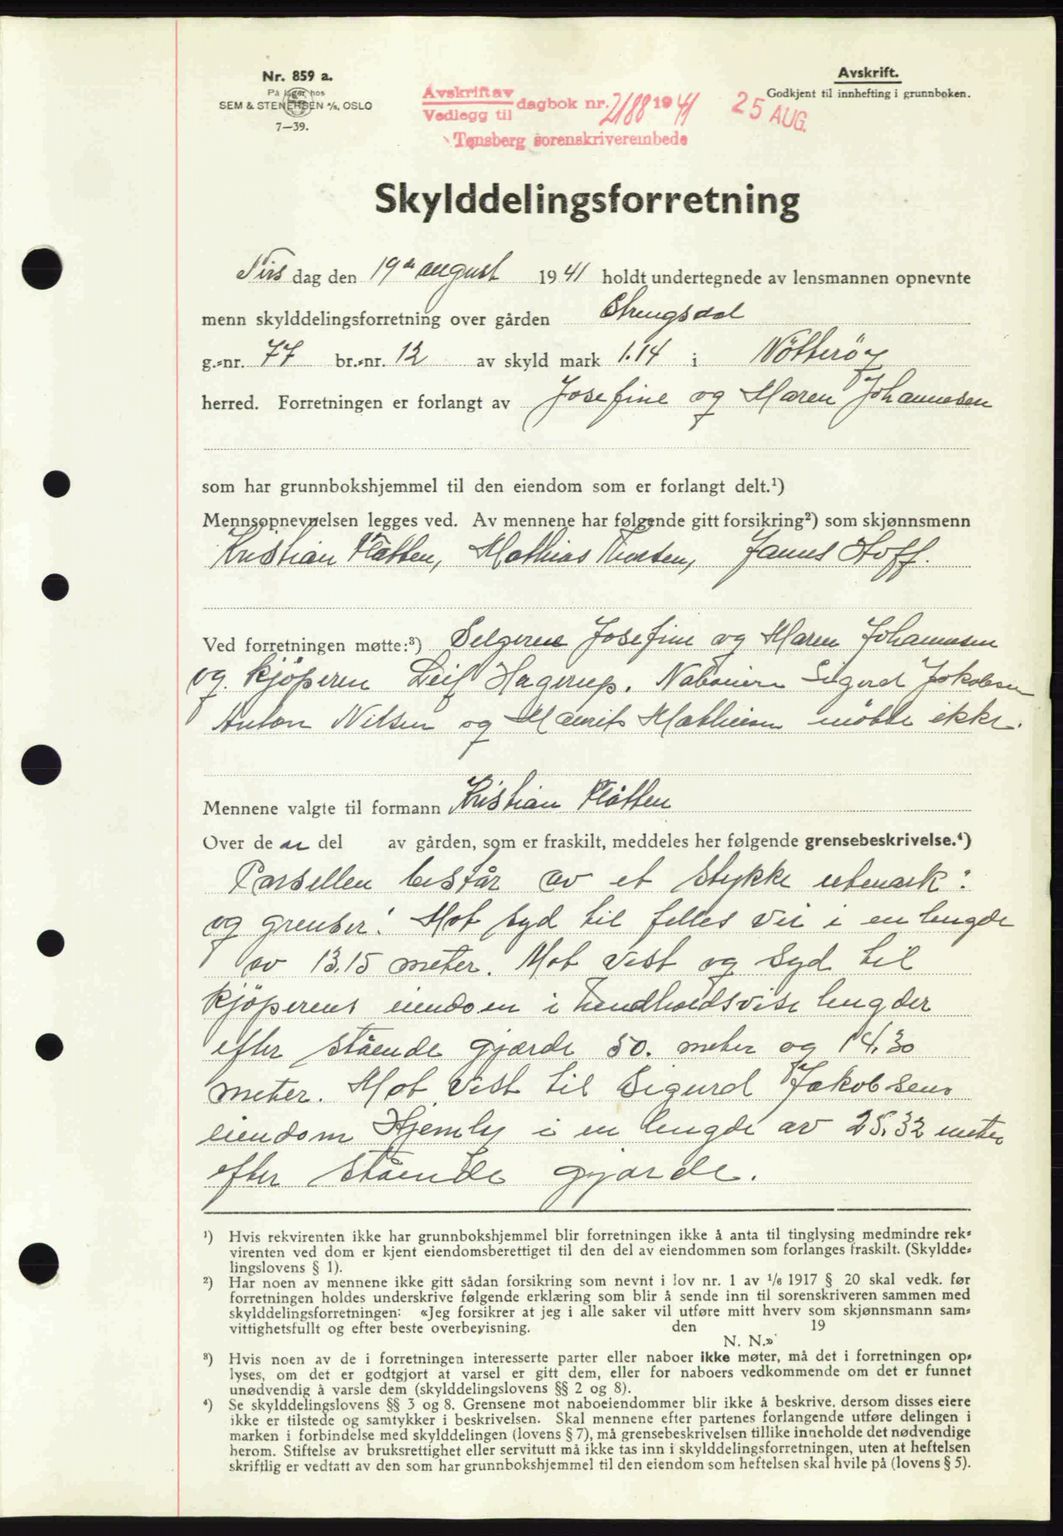 Nr. 859 a.
På lager hos
SEM & STENERSEN A/S, OSLO
7—39.
Avskrift av
Vedlegg til dagbok nr. 2188 1941
Tønsberg sorenskriverembede
25 AUG.
Avskrift.
Godkjent til innhefting i grunnboken.
Skylddelingsforretning
Tirs dag den 19de august 1941 holdt undertegnede av lensmannen opnevnte
menn skylddelingsforretning over gården Strengsdal
g.-nr. 77 br.-nr. 12 av skyld mark 1.14 i Nötteröy
herred. Forretningen er forlangt av Josefine og Maren Johannesen
som har grunnbokshjemmel til den eiendom som er forlangt delt.¹)
Mennsopnevnelsen legges ved. Av mennene har følgende gitt forsikring²) som skjønnsmenn
Kristian Flåtten, Mathias Thorsen, James Hoff.
Ved forretningen møtte:³) Selgerne Josefine og Maren Johannesen
og kjöperen Leif Hagerup. Naboiern Sigurd Jakobsen
Anton Nilsen og Maurits Mathiesen mötte ikke.
Mennene valgte til formann Kristian Flåtten
Over de en del av gården, som er fraskilt, meddeles her følgende grensebeskrivelse.⁴)
Parsellen består av et stykke utmark:
og grenser: Mot syd til felles vei i en lengde
av 13,15 meter. Mot vest og syd til
kjöperens eiendom i henholdsvise lengder
efter stående gjærde 50. meter og 14,30
meter. Mot vest til Sigurd Jakobsens
eiendom Hjemly i en lengde av 25,32 meter
efter stående gjærde.
¹) Hvis rekvirenten ikke har grunnbokshjemmel blir forretningen ikke å anta til tinglysing medmindre rek-
virenten ved dom er kjent eiendomsberettiget til den del av eiendommen som forlanges fraskilt. (Skyldde-
lingslovens § 1).
²) Har noen av mennene ikke gitt sådan forsikring som nevnt i lov nr. 1 av ¹/₆ 1917 § 20 skal vedk. før
forretningen holdes underskrive følgende erklæring som blir å sende inn til sorenskriveren sammen med
skylddelingsforretningen: «Jeg forsikrer at jeg i alle saker vil utføre mitt hverv som skjønnsmann sam-
vittighetsfullt og efter beste overbevisning. den 19
N. N.»
³) Hvis noen av de i forretningen interesserte parter eller naboer ikke møter, må det i forretningen op-
lyses, om det er godtgjort at varsel er gitt dem, eller for naboers vedkommende om det er funnet
unødvendig å varsle dem (skylddelingslovens §§ 2 og 8).
⁴) Se skylddelingslovens §§ 3 og 8. Grensene mot naboeiendommer blir ikke å beskrive, dersom disses eiere
ikke er tilstede og samtykker i beskrivelsen. Skal mennene efter partenes forlangende utføre delingen i
marken i forbindelse med skylddelingen (lovens § 7), må grensebeskrivelsen tillike inneholde det nødvendige
herom. Stiftelse av bruksrettighet eller servitutt må ikke tas inn i skylddelingsforretningen, uten at heftelsen
skriftlig er vedtatt av den som har grunnbokshjemmel til den eiendom som heftelsen skal hvile på (lovens § 5).